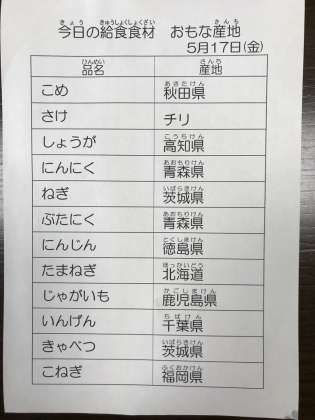 今日の給食食材 おもな産地
5月17日(金)
品名 産地
こめ 秋田県
さけ チリ
しょうが 高知県
にんにく 青森県
ねぎ 茨城県
ぶたにく 青森県
にんじん 徳島県
たまねぎ 北海道
じゃがいも 鹿児島県
いんげん 千葉県
きゃべつ 茨城県
こねぎ 福岡県